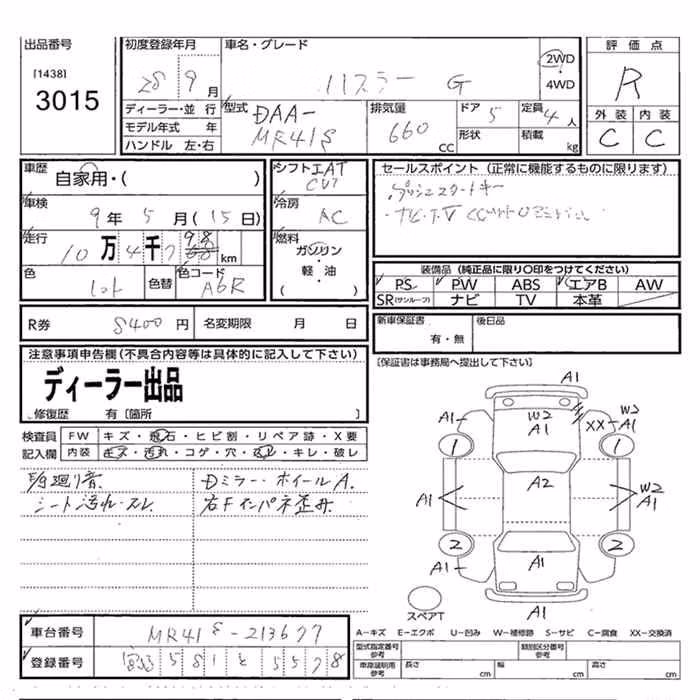 出品番号 [1438] 3015
初度登録年月 28 9月
車名・グレード ハスラー G
2WD・4WD
評価点 R
外装 内装
C C
ディーラー・並行
モデル年式 年
ハンドル 左・右
型式 DAA-MR41S
排気量 660 CC
ドア 5
形状
定員 4人
積載 kg
車歴 自家用・( )
車検 9年5月(15日)
走行 10万4千7 km
色
色替
色コード A6R
シフト AT CVT
冷房 AC
燃料 ガソリン・軽・油( )
セールスポイント (正常に機能するものに限ります)
プッシュスタートキー
・ナビ・TV
装備品 (純正品に限り○印をつけてください)
PS PW ABS エアB AW
SR(サンルーフ) ナビ TV 本革
R券 8400円 名変期限 月 日
新車保証書 有・無 後日品
[保証書は事務局へ提出して下さい]
注意事項申告欄(不具合内容等は具体的に記入して下さい)
ディーラー出品
修復歴 有〔箇所 〕
検査員 FW キズ・飛石・ヒビ割・リペア跡・X要
記入欄 内装 キズ・汚れ・コゲ・穴・スレ・キレ・破レ
廻り音 Dミラー・ホイールA.
シート汚れ・スレ 右Fインパネ歪み
A1
A1 W2 A1 XX W2 A1
1 1
A2
A1 W2 A1
2 2
A1 A1 A1
A1
スペアT
車台番号 MR41S-213677
登録番号 宮崎 581 と 5578
A-キズ E-エクボ U-凹み W-補修跡 S-サビ C-腐食 XX-交換済
型式指定番号参考 類別区分番号参考
車庫証明用参考 長さ cm 幅 cm 高さ cm